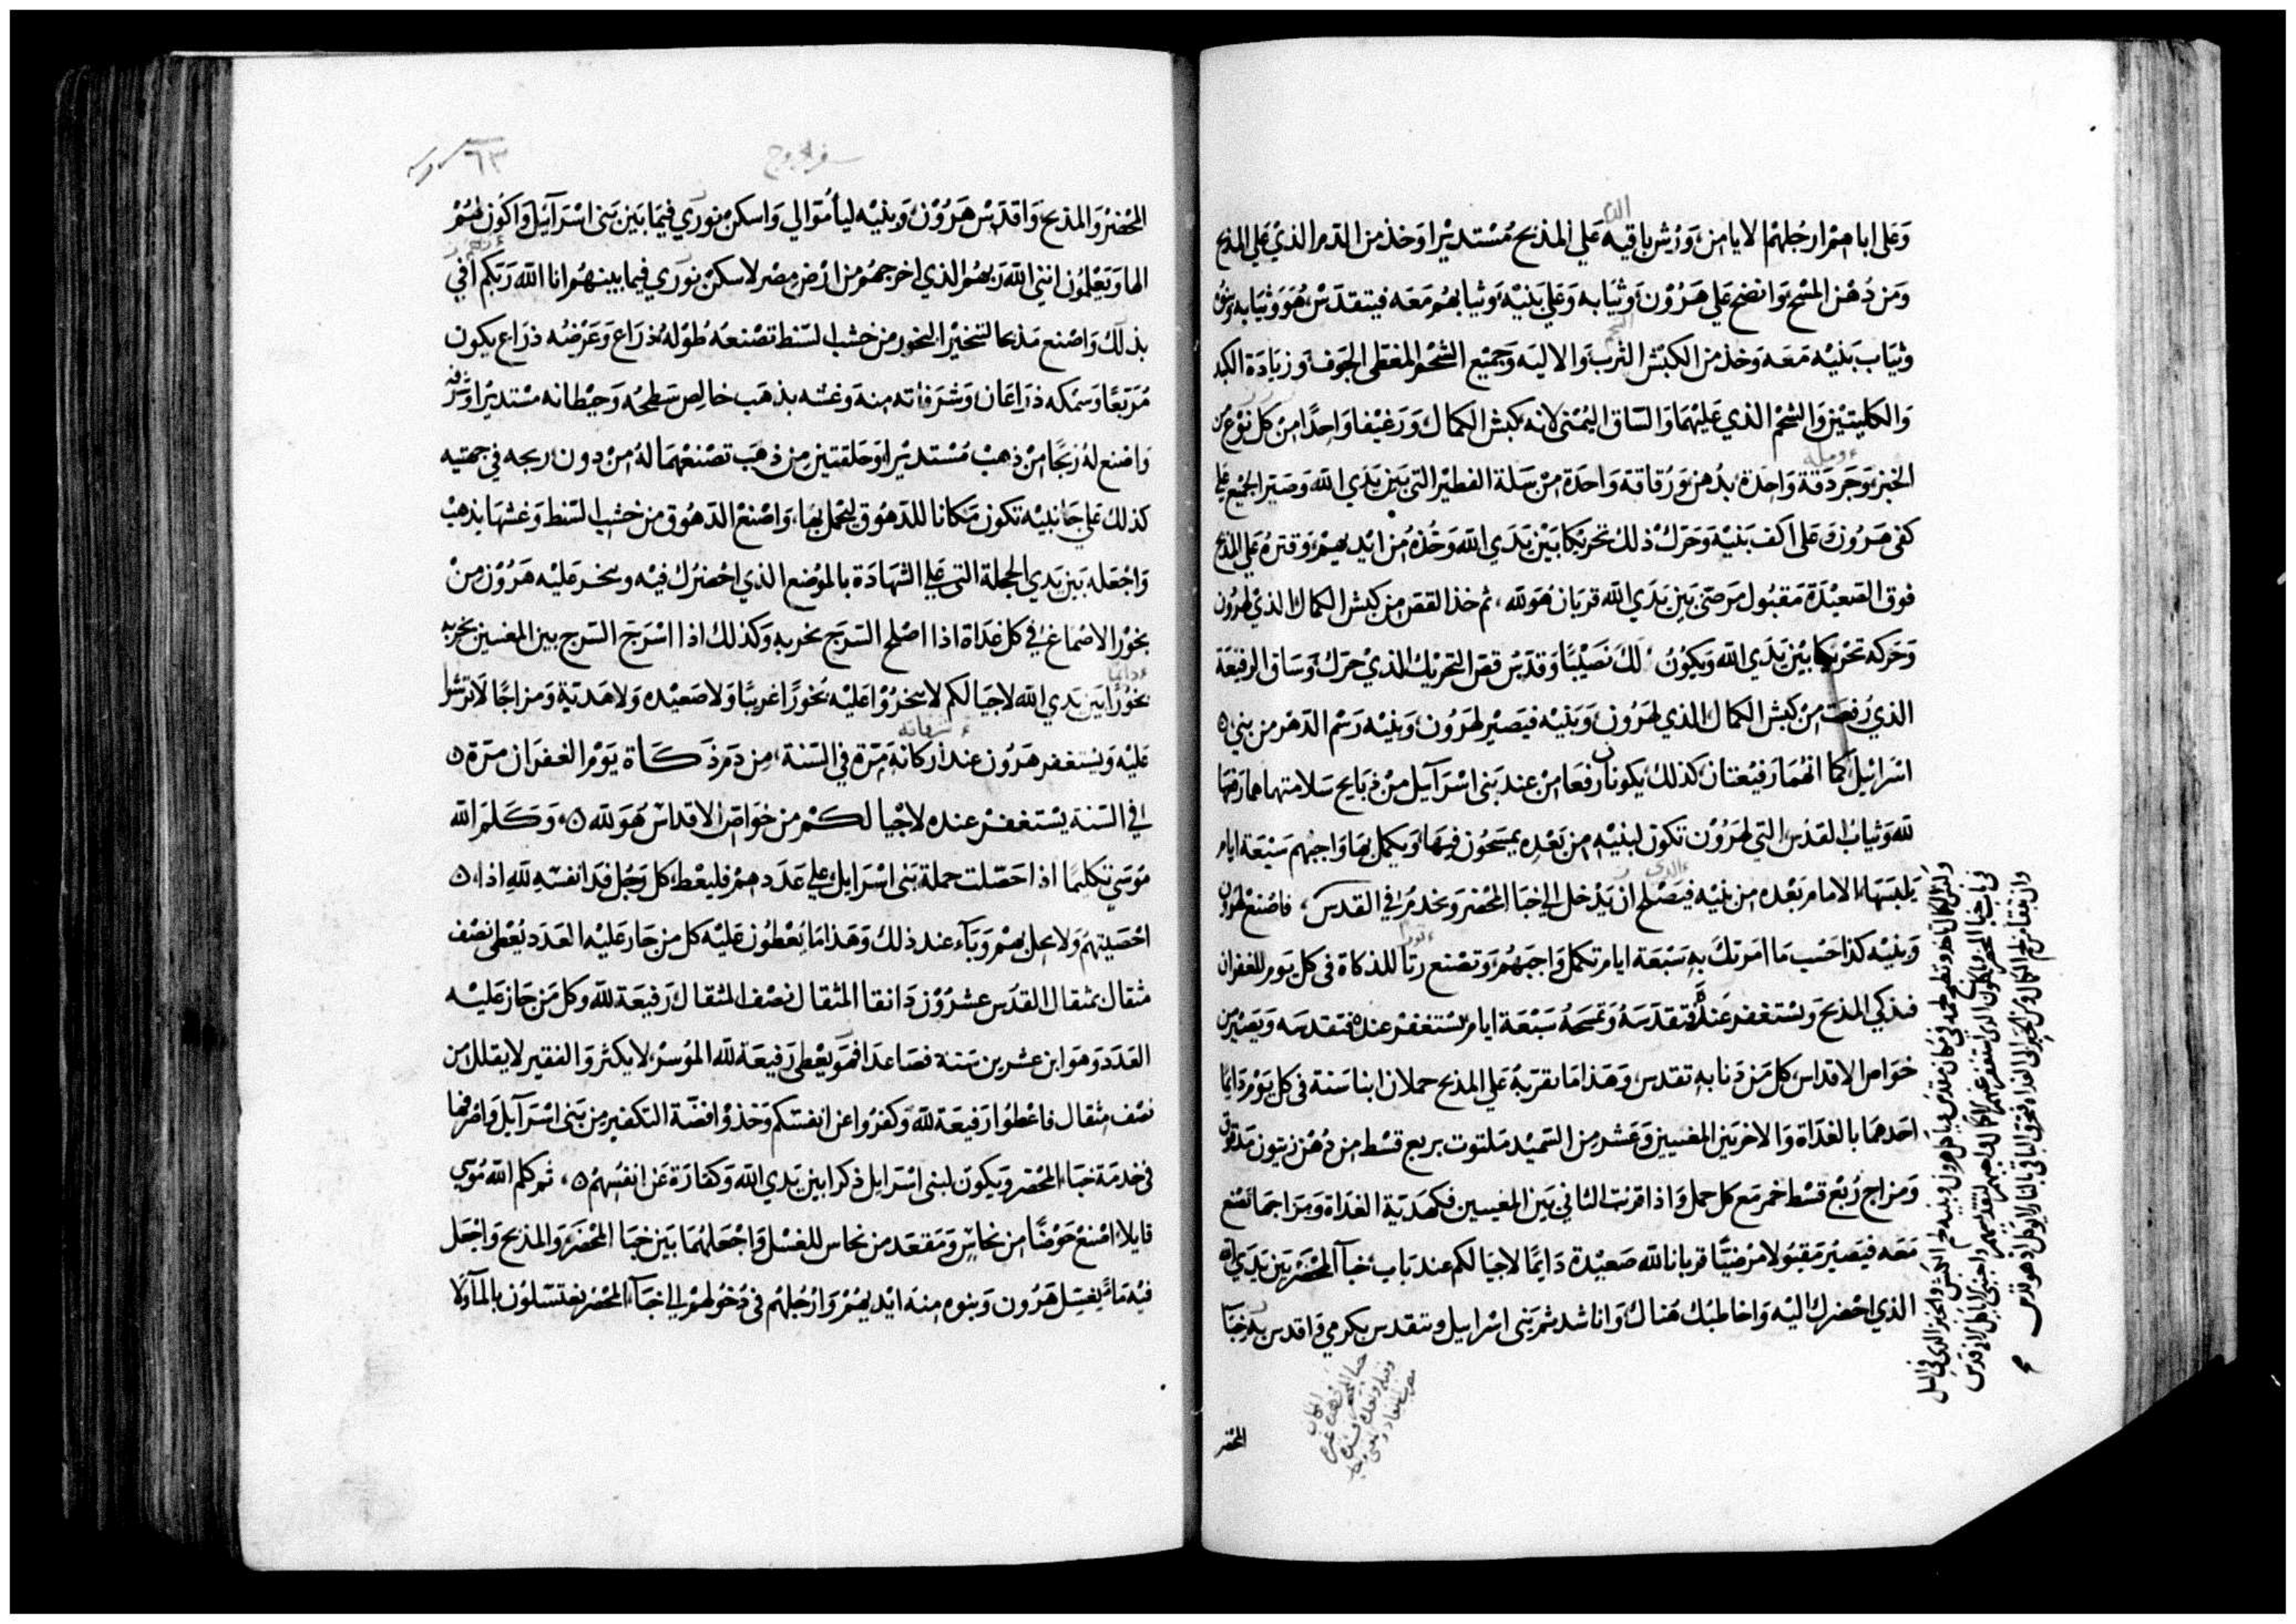 وعلى اباهم ارجلهم الايامن، ورش باقيه على المذبح مستديرا وخذ من الدم الذي على المذبح
ومن دهن المسح وانضح على هرون وثيابه وعلى بنيه وثيابهم معه فيتقدس هو وثيابه وبنوه
وثياب بنيه معه وخذ من الكبش الثرب والاليه وجميع الشحم المغطي الجوف وزيادة الكبد
والكليتين والشحم الذي عليهما والساق اليمنى لانه كبش الكمال ورغيفا واحدا من كل نوع من
الخبز وجردقة واحدة بدهن ورقاقة واحدة من سلة الفطير التي بين يدي الله وصير الجميع على
كفي هرون وعلى اكف بنيه وحرك ذلك تحريكا بين يدي الله وخذه من ايديهم وقتره على المذبح
فوق الصعيدة مقبول مرضى بين يدي الله قربان هو لله، ثم خذ القص من كبش الكمال الذي لهرون
وحركه تحريكا بين يدي الله ويكون لك نصيبا وقدس قص التحريك الذي حرك وساق الرفيعة
الذي رفعت من كبش الكمال الذي لهرون وبنيه فيصير لهرون وبنيه رسم الدهر من بني
اسرائيل كما انهما رفيعتان كذلك يكونان رفعا من عند بني اسرآيل من ذبايح سلامتها هما رفعها
لله وثياب القدس التي لهرون تكون لبنيه من بعده يمسحون فيها ويكمل بها واجبهم سبعة ايام
يلبسها الامام بعده من بنيه فيصلح ان يدخل الى خبا المحضر ويخدم في القدس، فاصنع لهرون
وبنيه كذا حسب ما امرتك به سبعة ايام تكمل واجبهم وتصنع رتا للذكاة في كل يوم للغفران
فذكي المذبح وتستغفر عنه فتقدسه وتمسحه سبعة ايام تستغفر عنده فتقدسه ويصير من
خواص الاقداس كل من دنا به تقدس وهذا ما تقربه على المذبح حملان ابنا سنة في كل يوم دايما
احدهما بالغداة والاخر بين المغيبين وعشر من السميد ملتوت بربع قسط من دهن زيتون مدقوق
ومزاج ربع قسط خمر مع كل حمل واذا قربت الثاني بين المغيبين فكهدية الغداة ومزاجها تصنع
معه فيصير مقبولا مرضيا قربانا لله صعيدة دايما لاجيالكم عند باب خبآ المحضر بين يدي الله
الذي احضرك اليه واخاطبك هناك واناشد ثم بني اسرايل وتتقدس بكرمي واقدس به خبآ
المحضر
سفر الخروج
٦٣
المحضر والمذبح واقدس هرون وبنيه ليأموا لي واسكن نوري فيما بين بني اسرآيل واكون لهم
الها ويعلمون انني الله ربهم الذي اخرجهم من ارض مصر لاسكن نوري فيما بينهم انا الله ربكم افي
بذلك واصنع مذبحا لتبخير البخور من خشب السنط تصنعه طوله ذراع وعرضه ذراع يكون
مربعا وسمكه ذراعان وشرفاته منه وغشه بذهب خالص سطحه وحيطانه مستديرا وشرفه
واصنع له زيجا من ذهب مستديرا وحلقتين من ذهب تصنعهما له من دون زيجه في جهتيه
كذلك على جانبيه تكون مكانا للدهوق ليحمل بها، واصنع الدهوق من خشب السنط وغشها بذهب
واجعله بين يدي الحجلة التي على الشهادة بالموضع الذي احضرك فيه ويبخر عليه هرون من
بخور الاصماغ في كل غداة اذا اصلح السرج بخر به وكذلك اذا اسرج السرج بين المغيبين بخر به
دايما
بخورا بين يدي الله لاجيالكم لا تبخروا عليه بخورا غريبا ولا صعيده ولا هدية ومزاجا لا ترشوا
عليه ويستغفر هرون عند اركانه مرة في السنة، من دم ذكاة يوم الغفران مرة
في السنة يستغفر عنده لاجيالكم من خواص الاقداس هو لله، وكلم الله
موسي تكليما اذا حصلت حملة بني اسرايل على عددهم فليعط كل رجل فدا نفسه لله اذا
احصيتهم ولا يحل بهم وبآء عند ذلك وهذا ما يعطون عليه كل من جاز عليه العدد يعطى نصف
مثقال بمثقال القدس عشرون دانقا المثقال نصف المثقال رفيعة لله وكل من جاز عليه
العدد وهو ابن عشرين سنة فصاعدا فهو يعطي رفيعة لله الموسر لا يكثر والفقير لا يقلل من
نصف مثقال فاعطوا رفيعة لله وكفروا عن انفسكم وخذوا فضة التكفير من بني اسرآيل واصرفها
في خدمة خباء المحضر ويكون لبني اسرايل ذكرا بين يدي الله وكفارة عن انفسهم، ثم كلم الله موسي
قايلا، اصنع حوضا من نحاس ومقعد من نحاس للغسل واجعلهما بين خبا المحضر والمذبح واجعل
فيه مآ يغسل هرون وبنوه منه ايديهم وارجلهم في دخولهم الى خبآ المحضر يغتسلون بالمآء ولا